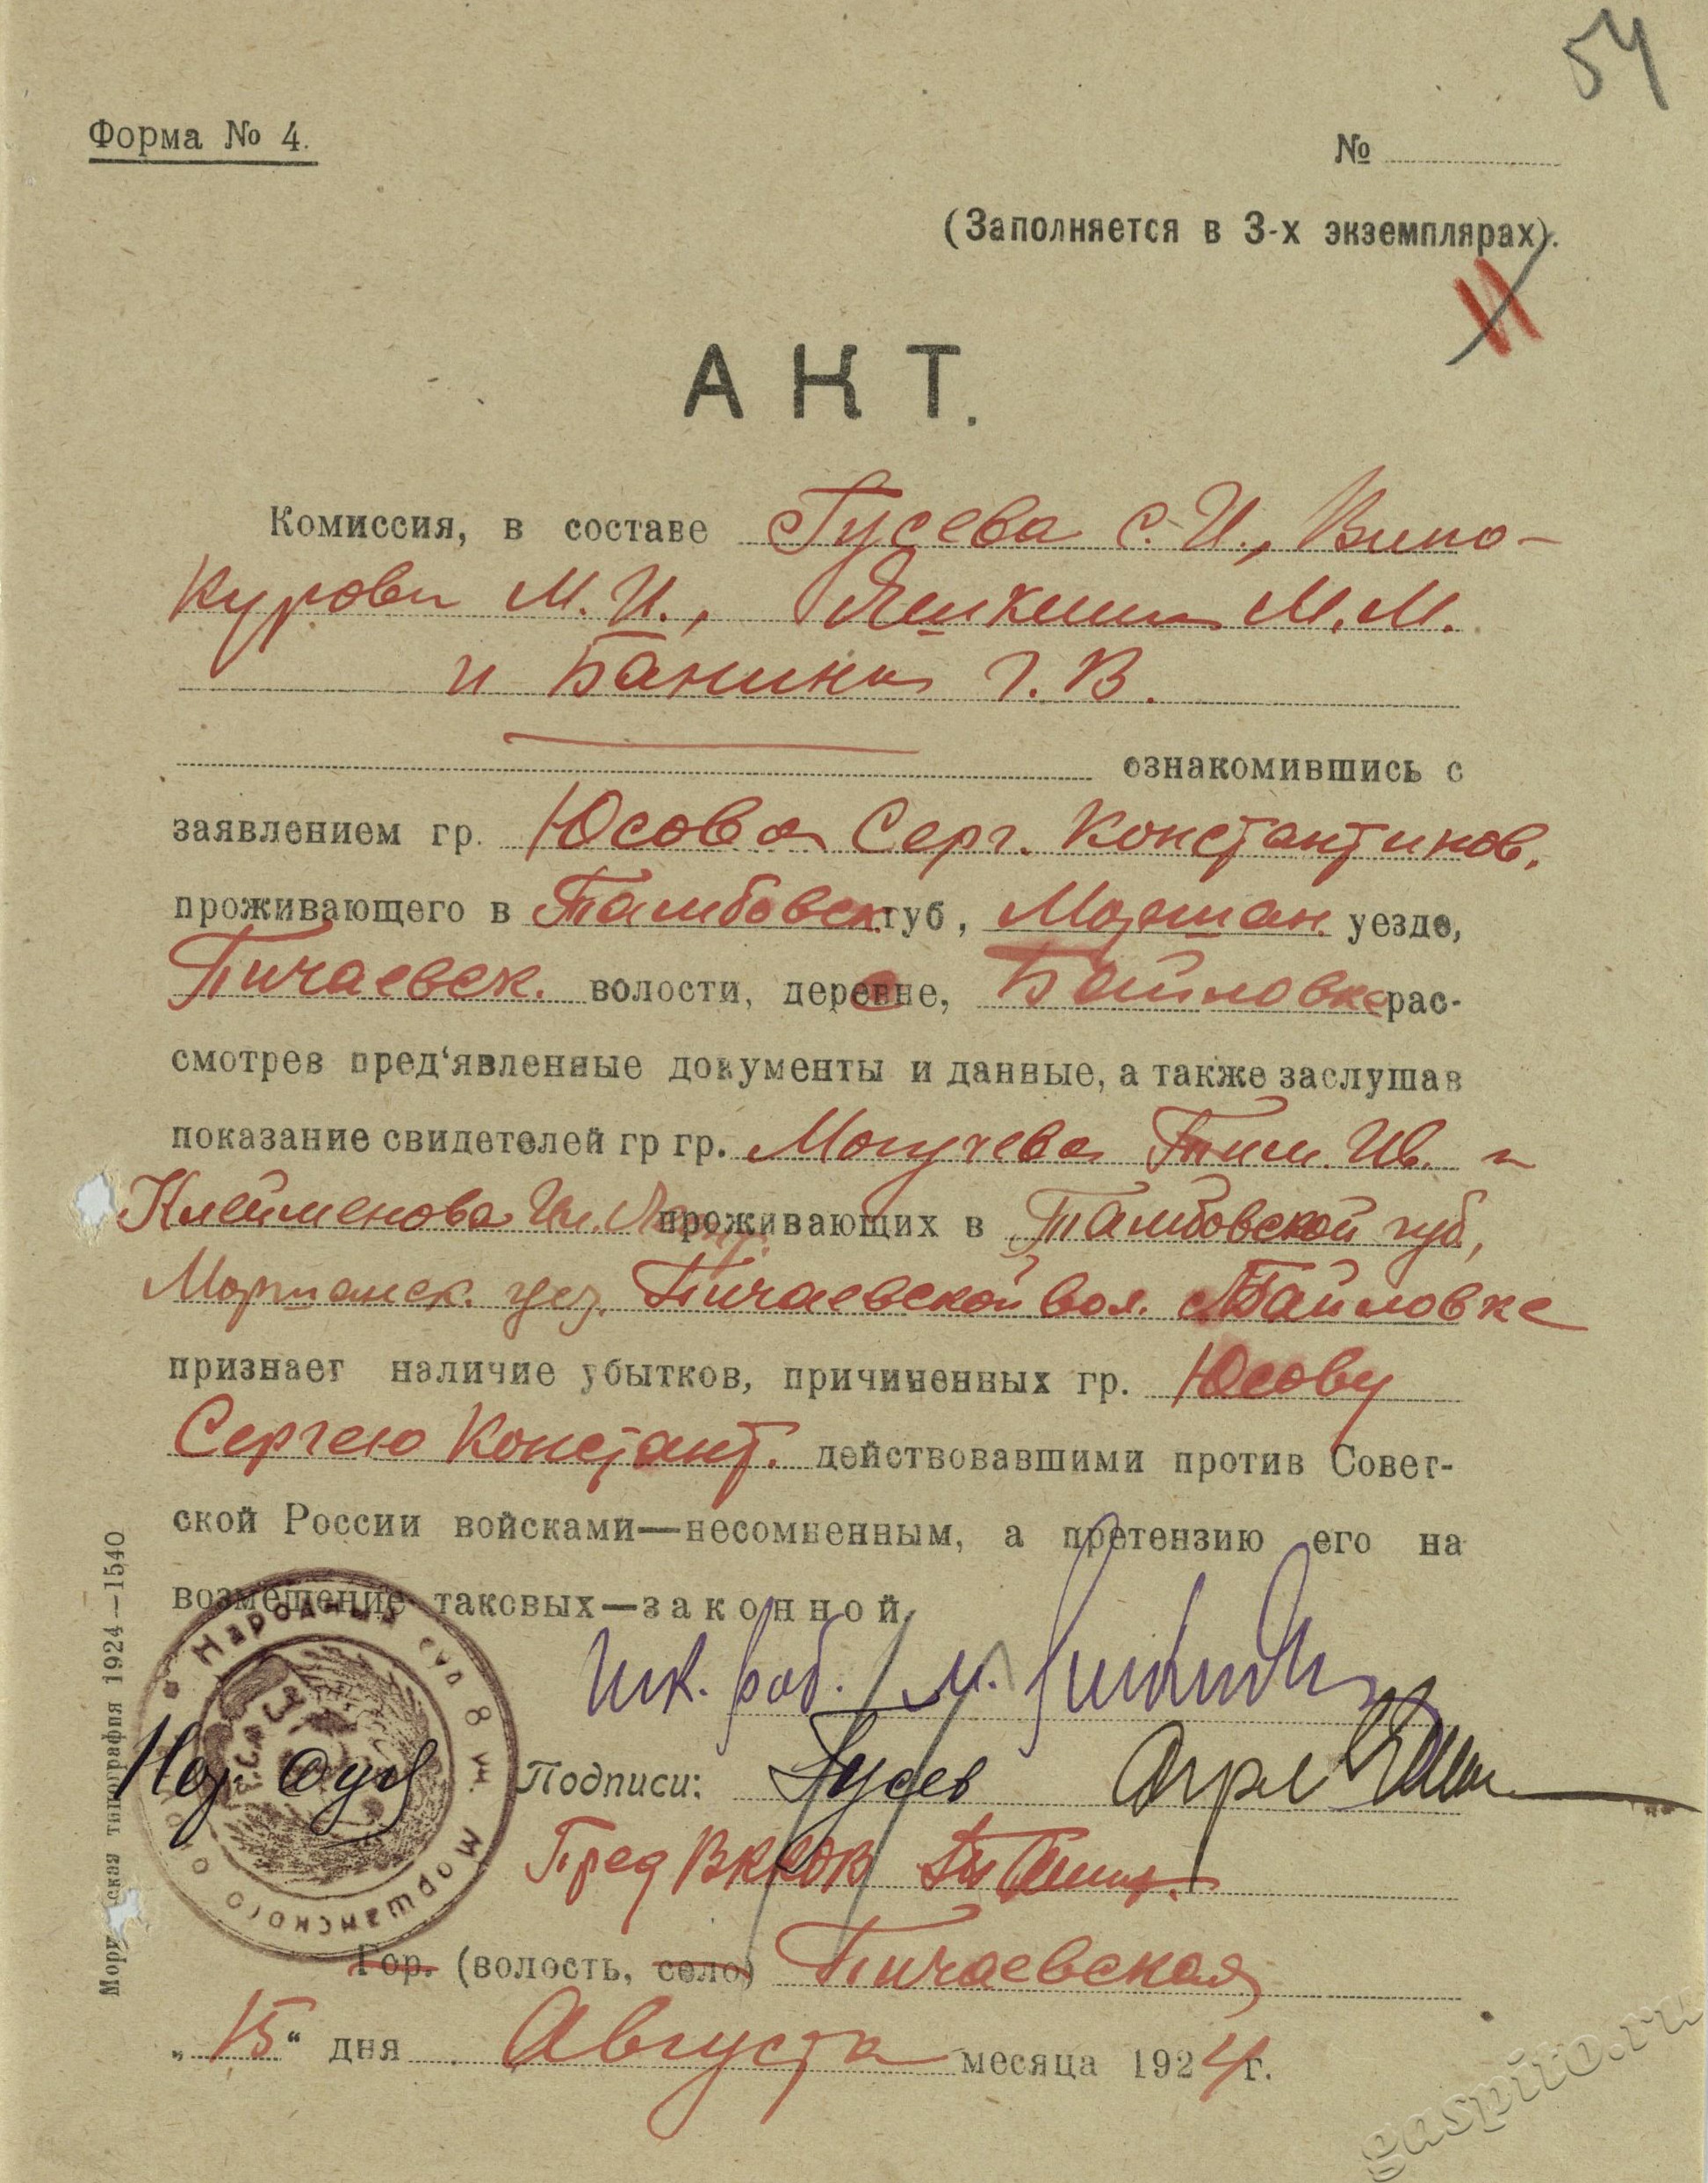 54
Форма № 4.
№
(Заполняется в 3-х экземплярах).
АКТ.
Комиссия, в составе Гусева С. И., Вино-
курова М. И., М. М.
и Банина Г. В.
ознакомившись с
заявлением гр. Юсова Серг. Константинов.
проживающего в Тамбовск. губ, Моршан. уезде,
Пичаевск. волости, деревне, Байловке рас-
смотрев пред‘явленные документы и данные, а также заслушав
показание свидетелей гр гр. Могучева Тим. Ив. и
Клейменова Ил. проживающих в Тамбовской губ,
Моршанск. уез. Пичаевской вол. Байловке
признает наличие убытков, причиненных гр. Юсову
Сергею Констант. действовавшими против Совет-
ской России войсками—несомненным, а претензию его на
возмещение таковых—законной.
шк. раб. М.
Нар Судья Подписи: Гусев
Пред ВККОВ
Гор. (волость, село) Пичаевская
„15“ дня Августа месяца 1924 г.
Народный суд 8 уч. Моршанского
Р.С.Ф.С.Р.
ская типография 1924—1540
gaspito.ru